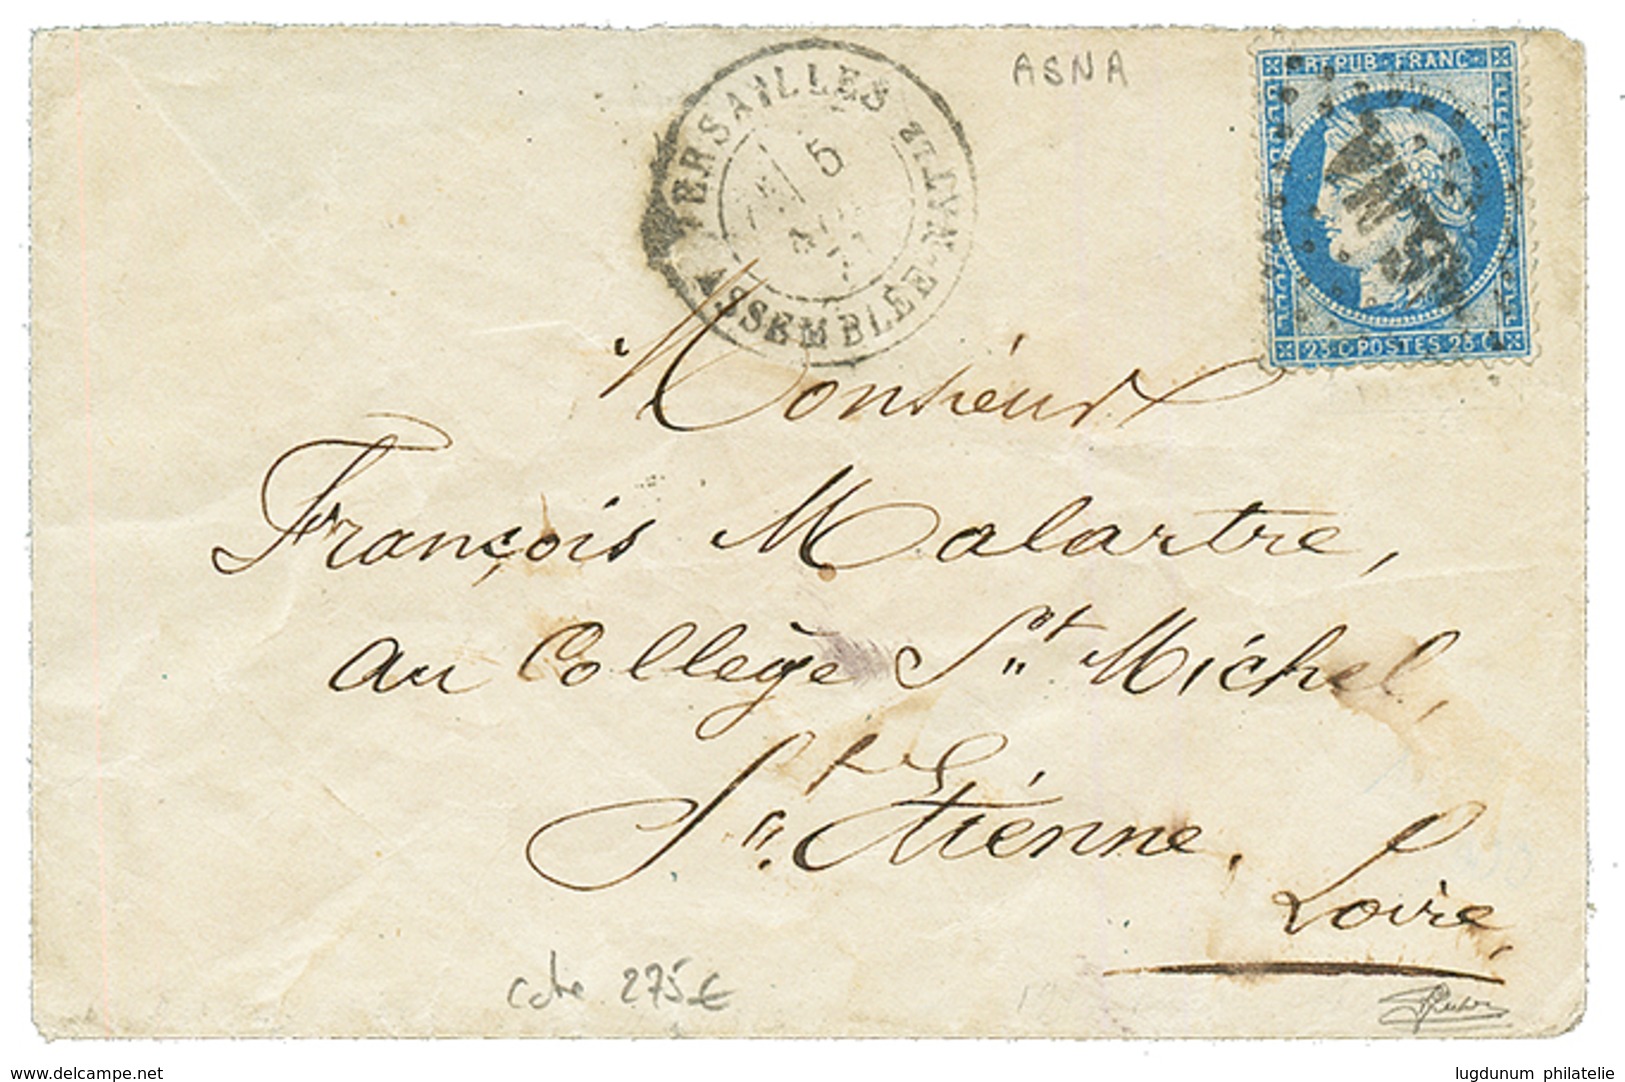 ASNA
VERSAILLES
ASSEMBLÉE-NATLE
5
REPUB·FRANC·
ASNA
25 C POSTES 25 C
Monsieur
François Malartre,
au Collège St Michel,
St Etienne,
Loire,
cote 275€
www.delcampe.net
lugdunum philatelie